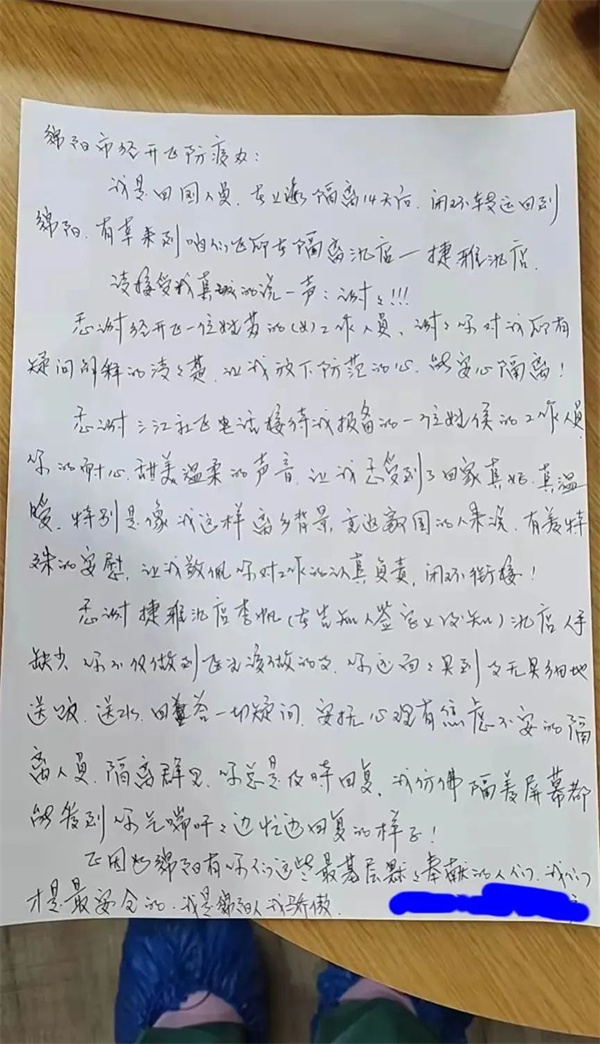 绵阳市经开区防疫办：
我是回国人员，在上海隔离14天后，闭环转运回到
绵阳，有幸来到咱们区所在隔离酒店—捷雅酒店。
请接受我真诚的说一声：谢谢!!!
感谢经开区一位姓黄的(女)工作人员，谢谢你对我所有
疑问解释的清清楚楚，让我放下防范的心，能安心隔离！
感谢三江社区电话接待我报备的一位姓侯的工作人员
你的耐心，甜美温柔的声音，让我感受到了回家真好，真温
暖，特别是像我这样离乡背景，竟返祖国的人来说，有着特
殊的安慰，让我敬佩你对工作的认真负责，闭环衔接！
感谢捷雅酒店李帆(在告知人签字上没知)酒店人手
缺少，你不仅做到自己该做的事，你还面面具到事无具细地
送饭、送水、回答一切疑问，安抚心理有焦虑不安的隔
离人员，隔离群里，你总是及时回复，我仿佛隔着屏幕都
能看到你气喘吁吁边忙边回复的样子！
正因为绵阳有你们这些最基层默默奉献的人们，我们
才是最安全的，我是绵阳人我骄傲。